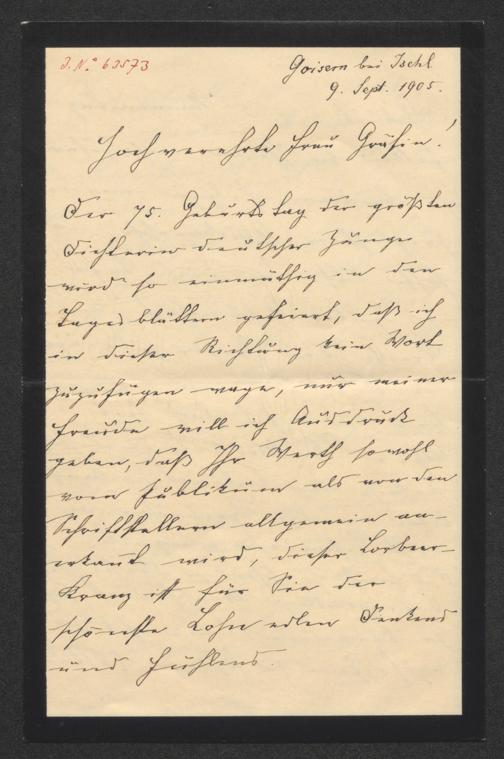 J. N.º 63573
Goisern bei Ischl
9. Sept. 1905.
Hochverehrte Frau Gräfin!
Der 75. Geburtstag der größten
Dichterin deutscher Zunge
wird so einmüthig in den
Tagesblättern gefeiert, daß ich
in dieser Richtung kein Wort
zuzufügen wage, nur meiner
Freude will ich Ausdruck
geben, daß Ihr Werth sowohl
vom Publikum als von den
Schriftstellern allgemein an-
erkannt wird, dieser Lorbeer-
Kranz ist für Sie der
schönste Lohn edlen Denkens
und Fühlens.